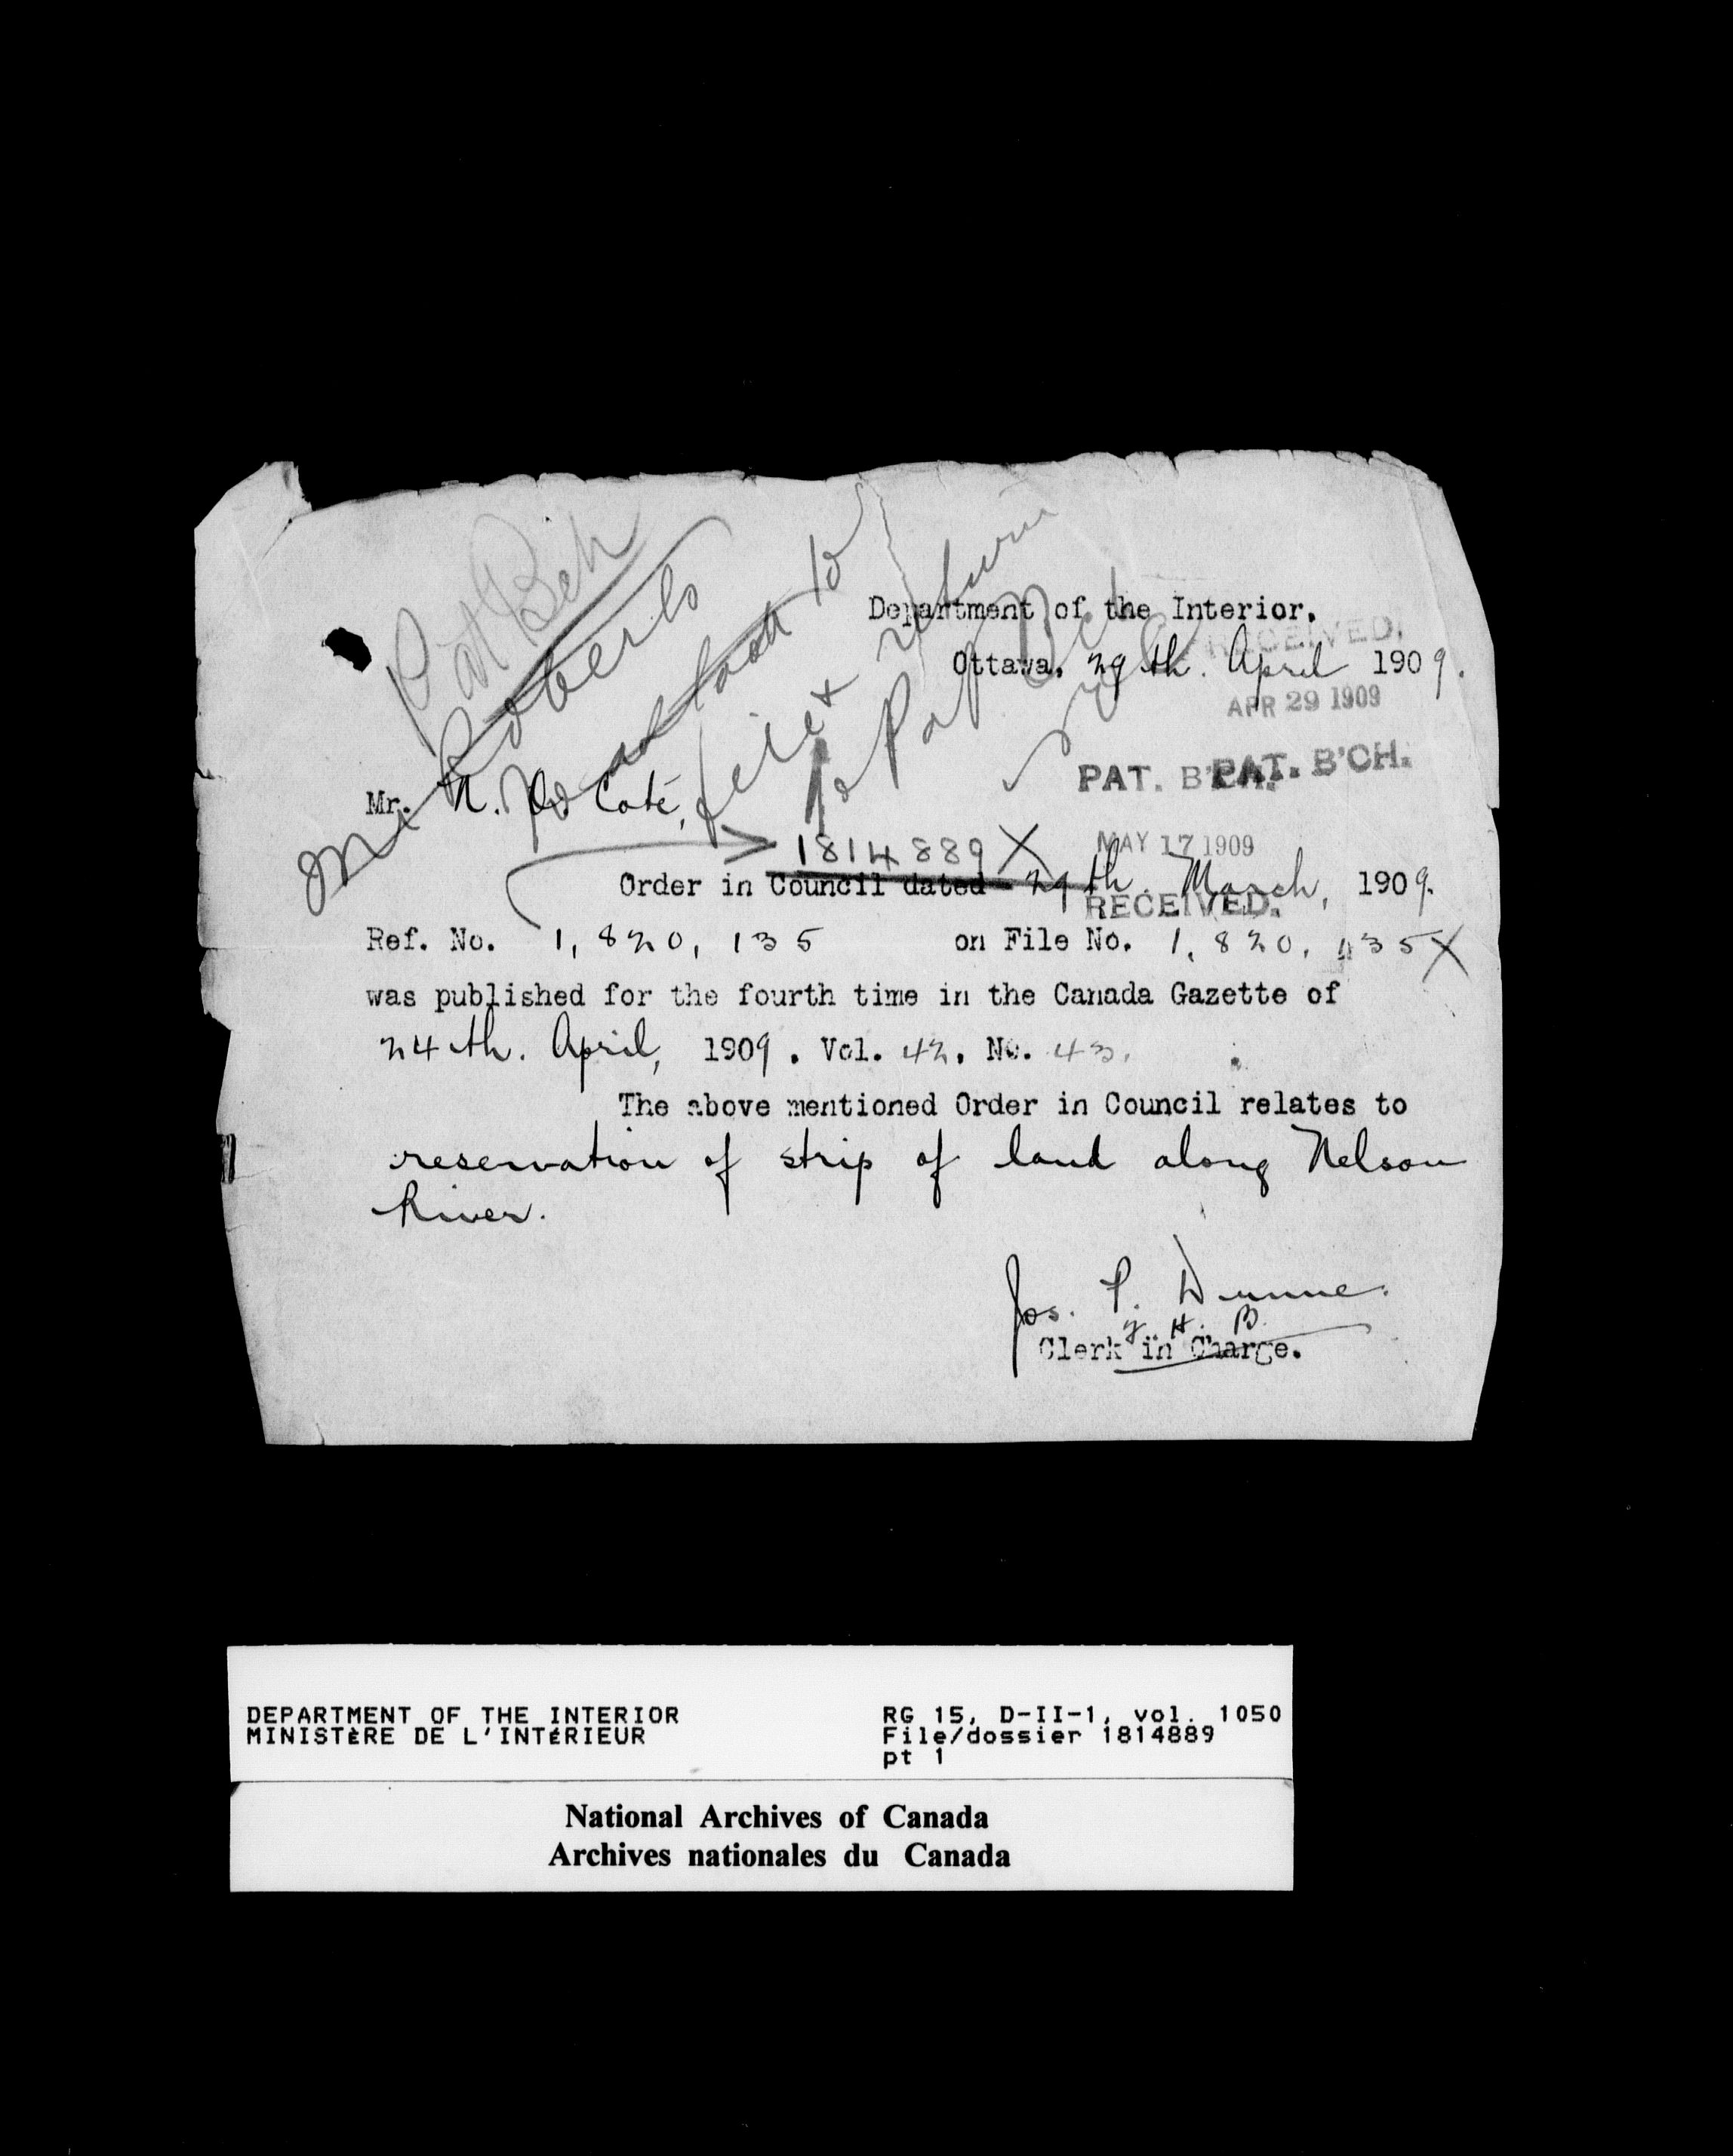 Pat Bch
Mr Roberts
to
file & return
to Pat Bch
Department of the Interior.
RECEIVED.
Ottawa, 29th. April 1909.
APR 29 1909
PAT. B'CH.
PAT. B'CH.
Mr. N. O. Coté,
1814889 X
MAY 17 1909
Order in Council dated 29th. March, 1909.
RECEIVED.
Ref. No. 1,820,135 on File No. 1,820,135 X
was published for the fourth time in the Canada Gazette of
24th. April, 1909. Vol. 42. No. 43.
The above mentioned Order in Council relates to
reservation of strip of land along Nelson
River.
Jos. P. Dunne.
H. B.
Clerk in Charge.
DEPARTMENT OF THE INTERIOR
MINISTÈRE DE L'INTÉRIEUR
RG 15, D-II-1, vol. 1050
File/dossier 1814889
pt 1
National Archives of Canada
Archives nationales du Canada